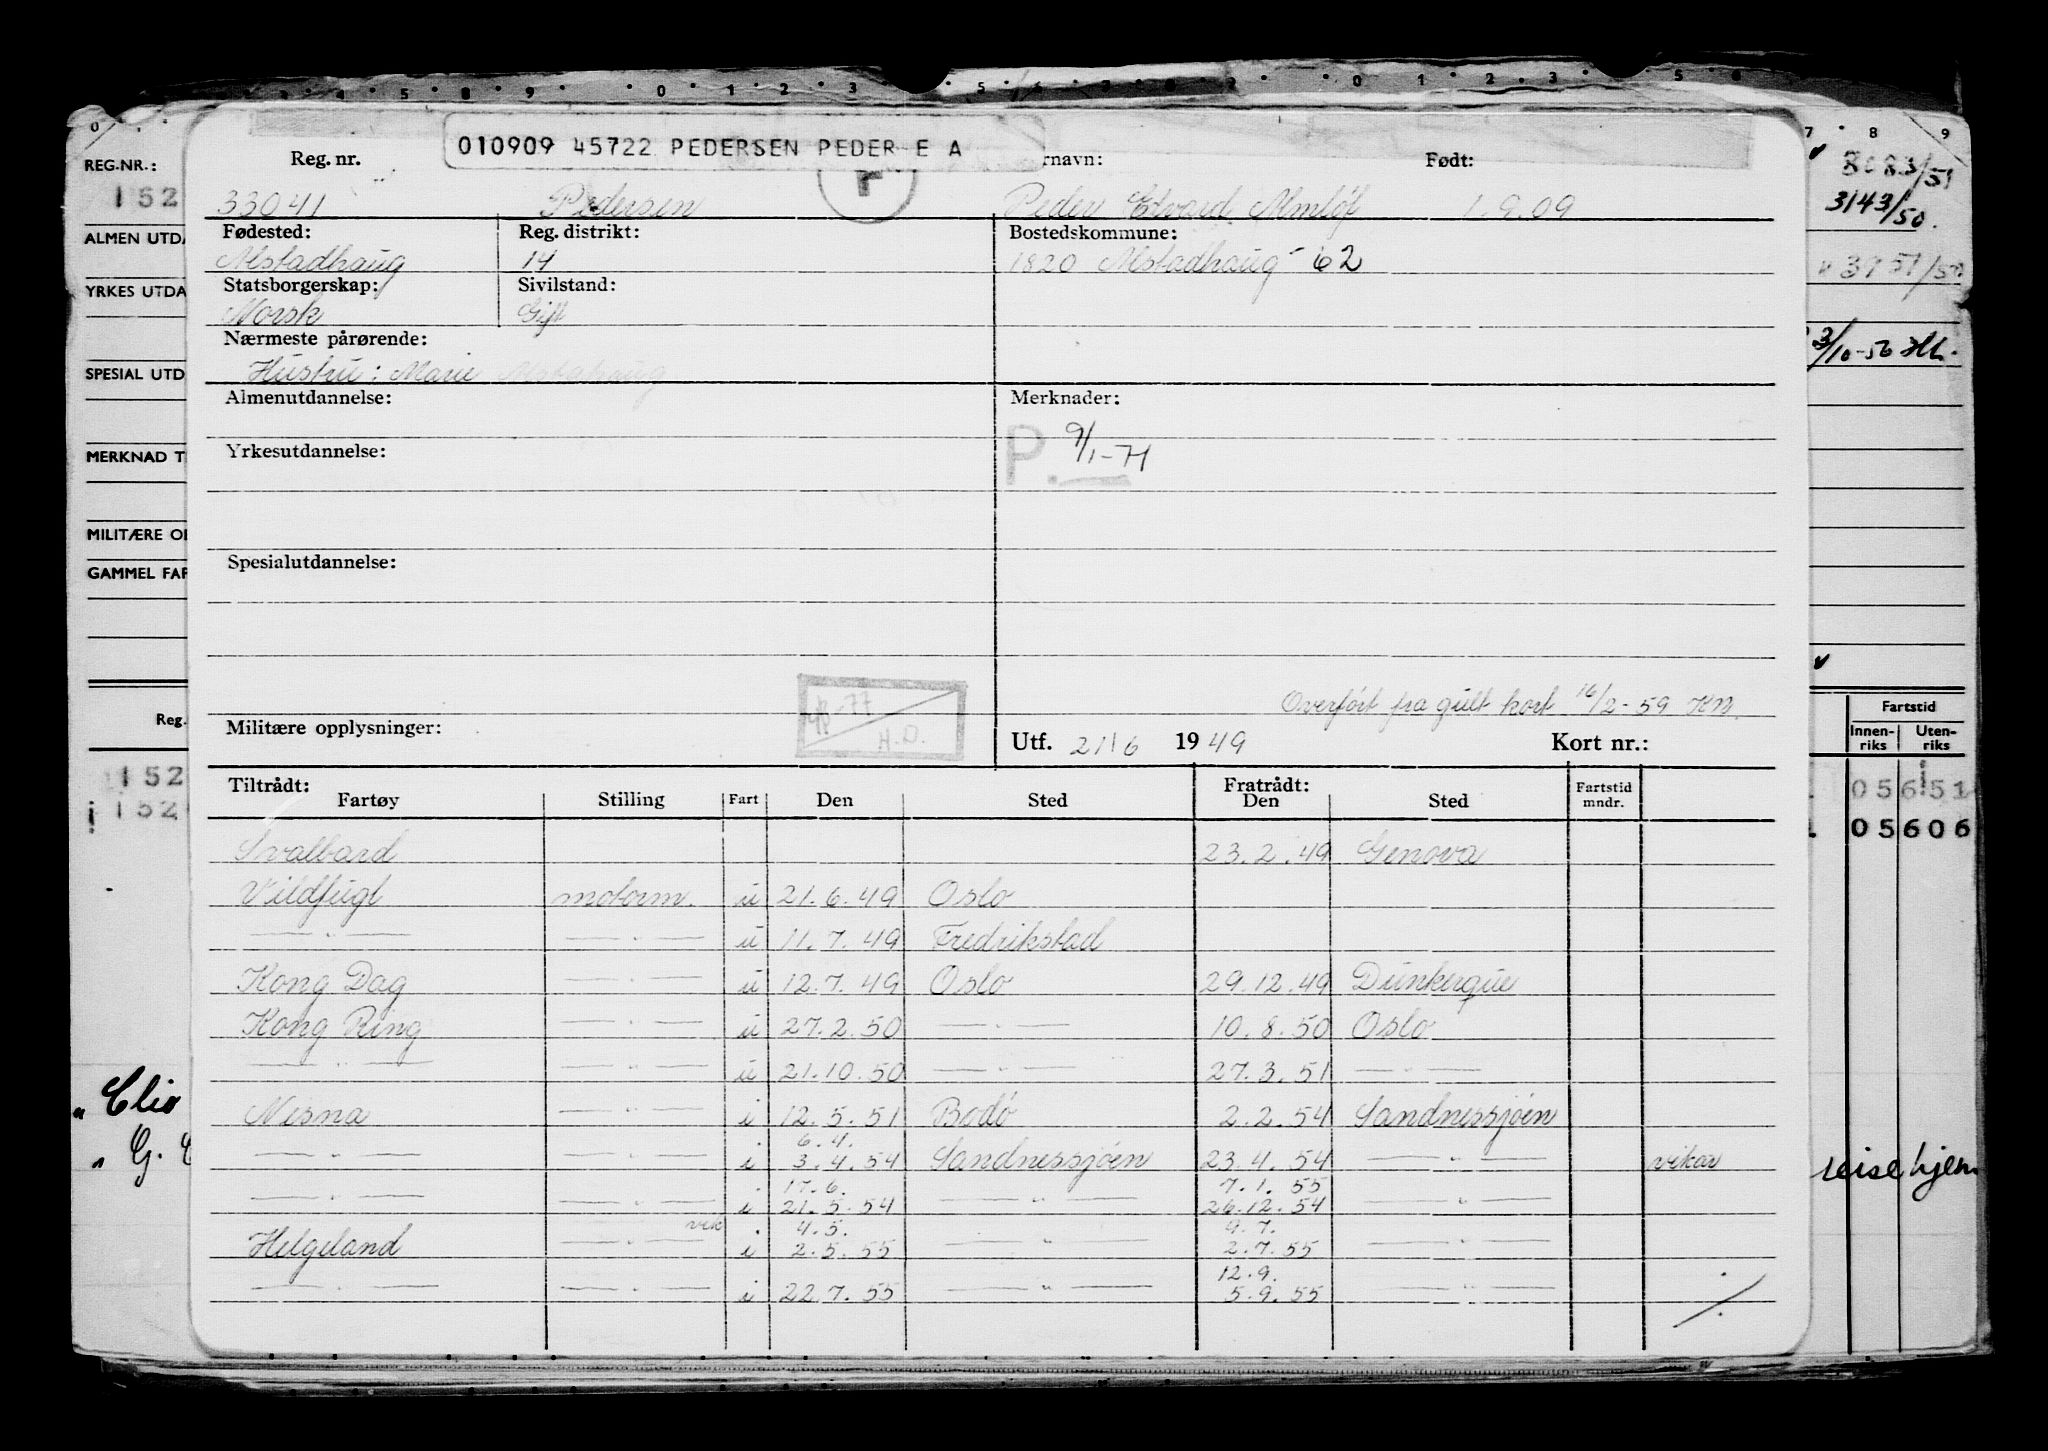 010909 45722 PEDERSEN PEDER E A
Reg. nr. rnavn: Født:
33041 Pedersen Peder Edvard Almlöf 1.9.09
Fødested: Reg. distrikt: Bostedskommune:
Alstadhaug 14 1820 Alstadhaug - 62
Statsborgerskap: Sivilstand:
Norsk Gift
Nærmeste pårørende:
Hustru: Marie Alstahaug
Almenutdannelse: Merknader:
P. 9/1-71
Yrkesutdannelse:
Spesialutdannelse:
Overført fra gult kort 16/2-59 KN.
Militære opplysninger: -77 H.O. Utf. 21/6 1949 Kort nr.:
Tiltrådt: Fratrådt:
Fartøy Stilling Fart Den Sted Den Sted Fartstid mndr.
Svalbard 23.2.49 Genova
Vildfugl motorm. u 21.6.49 Oslo
— " — — " — u 11.7.49 Fredrikstad
Kong Dag — " — u 12.7.49 Oslo 29.12.49 Dunkerque
Kong Ring — " — u 27.2.50 — " — 10.8.50 Oslo
— " — — " — u 21.10.50 — " — 27.3.51 — " —
Nesna — " — i 12.5.51 Bodö 2.2.54 Sandnessjöen
6.4.
— " — — " — i 3.4.54 Sandnessjöen 23.4.54 — " — vikar
17.6. 7.1.55
— " — — " — i 21.5.54 — " — 26.12.54 — " —
vik 4.5. 9.7.
Helgeland — " — i 2.5.55 — " — 2.7.55
12.9.
— " — — " — i 22.7.55 — " — 5.9.55 — " —
./.
REG.NR.:
152
ALMEN UTDA
YRKES UTDA
SPESIAL UTD
MERKNAD T
MILITÆRE O
GAMMEL FAR
Reg.
152
i 152
" Clio
" G.
7 8 9
3143/50.
3951/50
3/10-56
Fartstid
Innenriks Utenriks
05651
05606
reise hjem